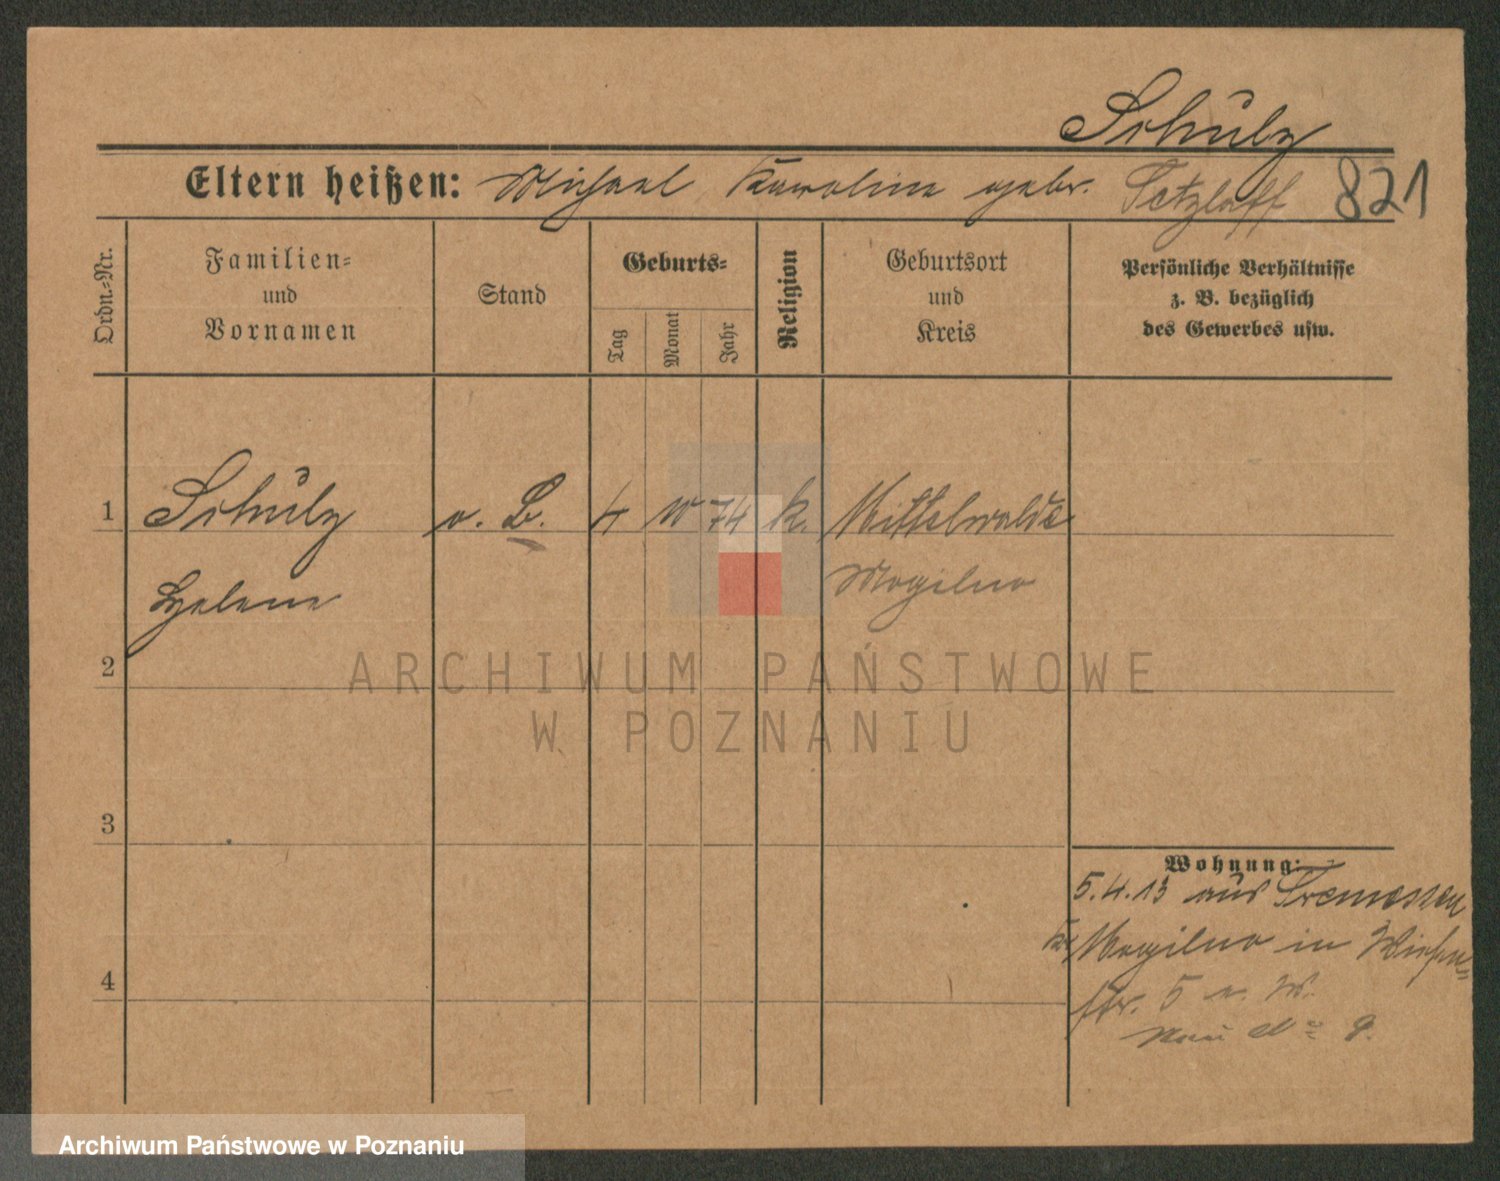 Schulz
Eltern heißen: Michael Karoline gebr. Tetzlaff 821
Ordn.-Nr.
Familien- und Vornamen
Stand
Geburts-
Tag
Monat
Jahr
Religion
Geburtsort und Kreis
Persönliche Verhältnisse
z. B. bezüglich
des Gewerbes usw.
1 Schulz o. B. 4 10 74 k. Mittelwalde
Helene Mogilno
2
3
4
Wohnung:
5.4.13 aus Tremessen
Kr. Mogilno in Wiesen-
str. 5 a. W.
neue No 9.
ARCHIWUM PAŃSTWOWE
W POZNANIU
Archiwum Państwowe w Poznaniu